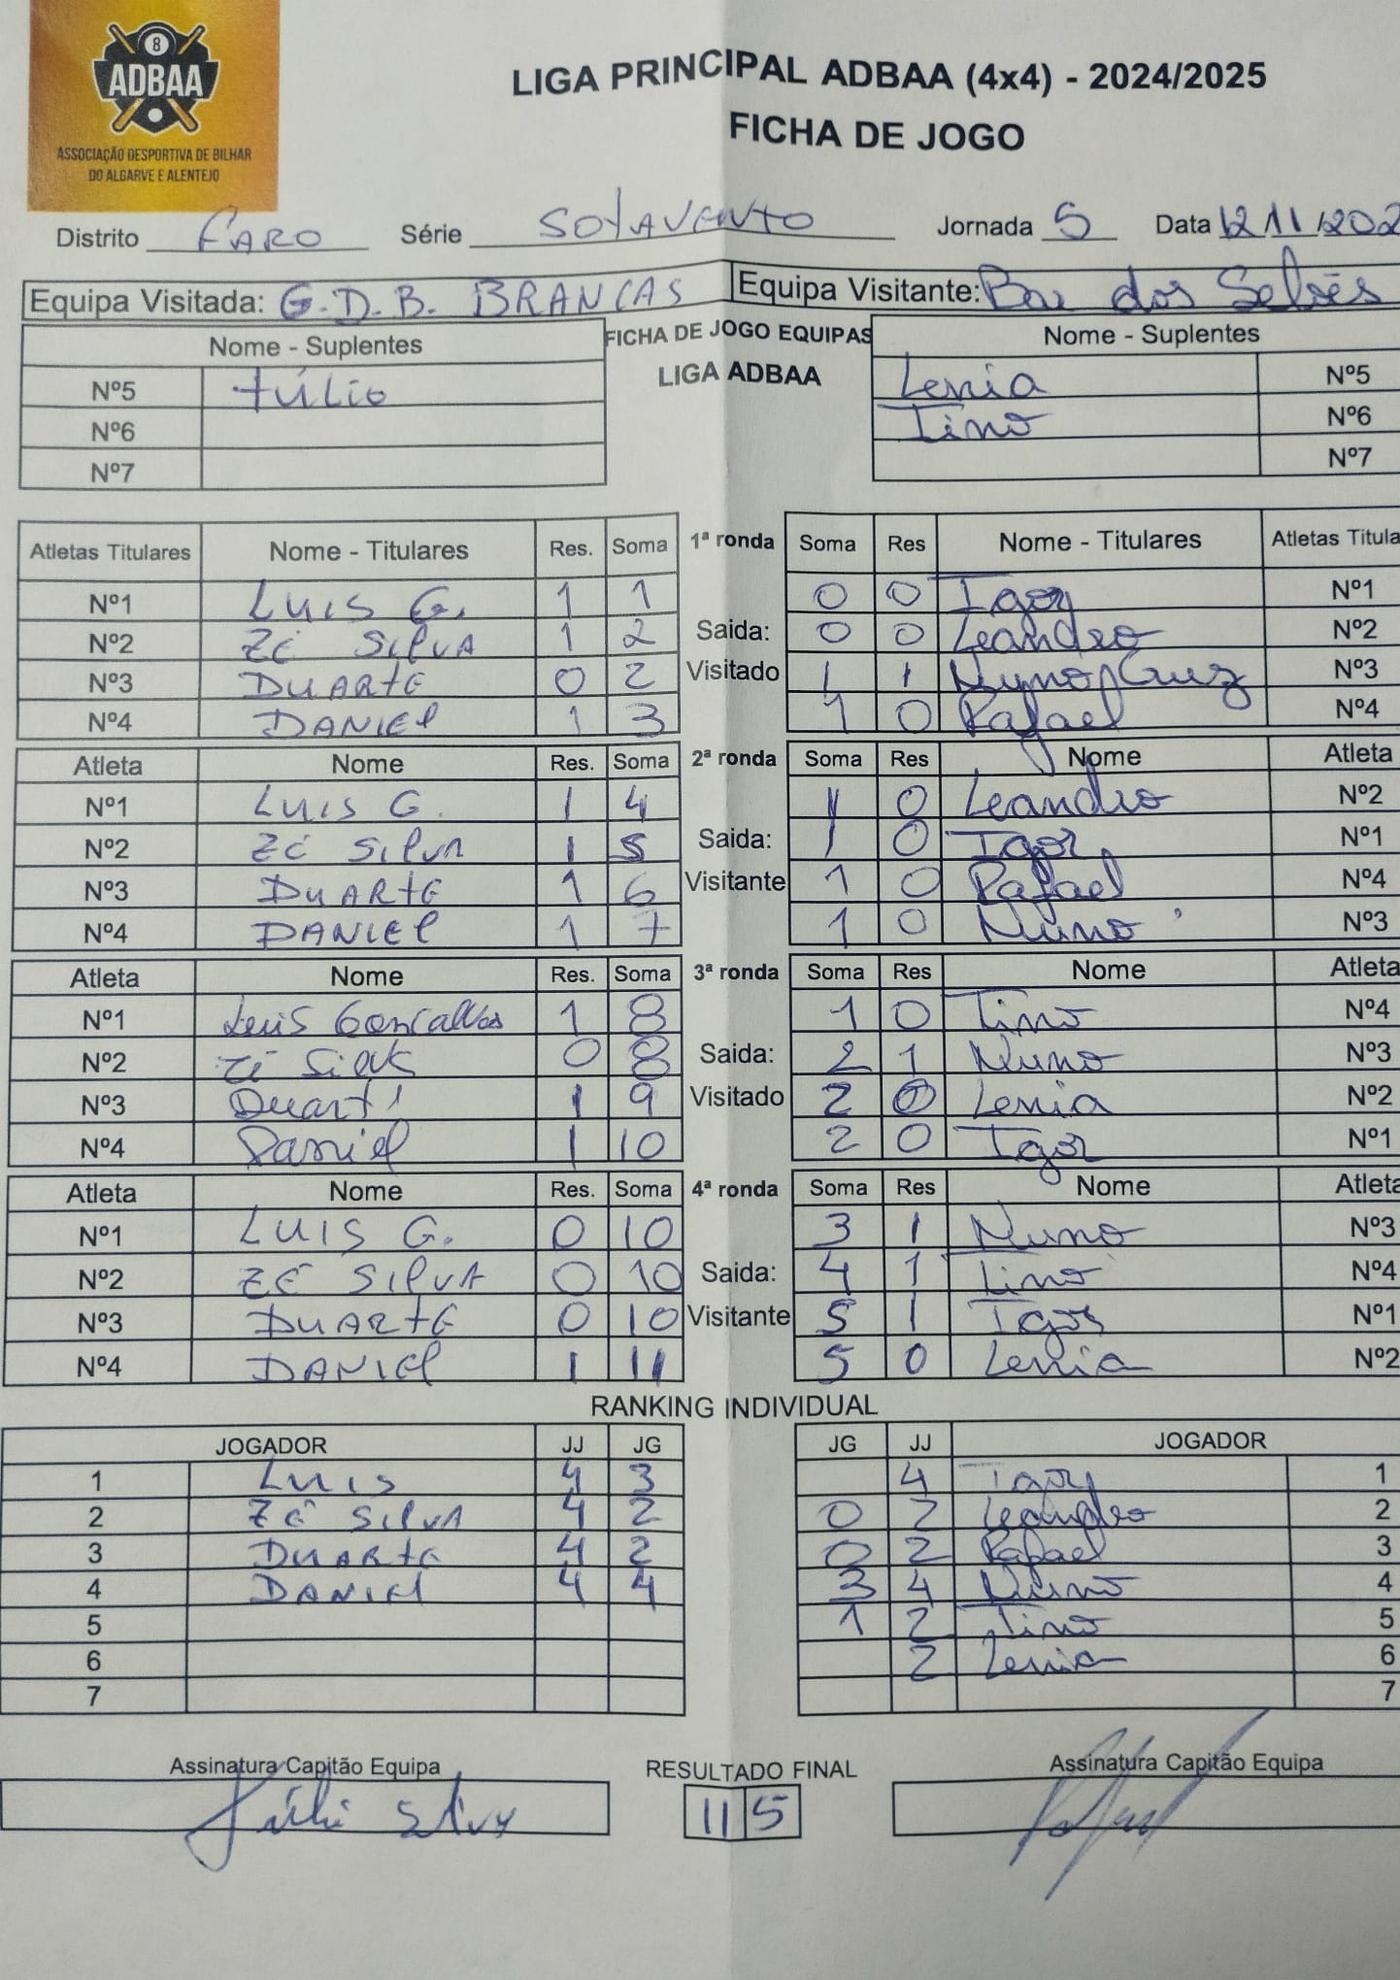 8
ADBAA
ASSOCIAÇÃO DESPORTIVA DE BILHAR
DO ALGARVE E ALENTEJO
LIGA PRINCIPAL ADBAA (4x4) - 2024/2025
FICHA DE JOGO
Distrito FARO Série SOTAVENTO Jornada 5 Data 12/11/202
Equipa Visitada: G.D.B. BRANCAS Equipa Visitante: Bar dos Selões
Nome - Suplentes FICHA DE JOGO EQUIPAS Nome - Suplentes
Nº5 Túlio LIGA ADBAA Lenia Nº5
Nº6 Tino Nº6
Nº7 Nº7
Atletas Titulares Nome - Titulares Res. Soma 1ª ronda Soma Res Nome - Titulares Atletas Titula
Nº1 LUIS G. 1 1 0 0 Igor Nº1
Nº2 ZÉ SILVA 1 2 Saida: 0 0 Leandro Nº2
Nº3 DUARTE 0 2 Visitado 1 1 Nuno Cruz Nº3
Nº4 DANIEL 1 3 1 0 Rafael Nº4
Atleta Nome Res. Soma 2ª ronda Soma Res Nome Atleta
Nº1 LUIS G. 1 4 1 0 Leandro Nº2
Nº2 ZÉ SILVA 1 5 Saida: 1 0 Igor Nº1
Nº3 DUARTE 1 6 Visitante 1 0 Rafael Nº4
Nº4 DANIEL 1 7 1 0 Nuno Nº3
Atleta Nome Res. Soma 3ª ronda Soma Res Nome Atleta
Nº1 Luis Goncalves 1 8 1 0 Tino Nº4
Nº2 Zé Silva 0 8 Saida: 2 1 Nuno Nº3
Nº3 Duarte 1 9 Visitado 2 0 Lenia Nº2
Nº4 Daniel 1 10 2 0 Igor Nº1
Atleta Nome Res. Soma 4ª ronda Soma Res Nome Atleta
Nº1 LUIS G. 0 10 3 1 Nuno Nº3
Nº2 ZÉ SILVA 0 10 Saida: 4 1 Tino Nº4
Nº3 DUARTE 0 10 Visitante 5 1 Igor Nº1
Nº4 DANIEL 1 11 5 0 Lenia Nº2
RANKING INDIVIDUAL
JOGADOR JJ JG JG JJ JOGADOR
1 LUIS 4 3 4 Igor 1
2 ZÉ SILVA 4 2 0 2 Leandro 2
3 DUARTE 4 2 0 2 Rafael 3
4 DANIEL 4 4 3 4 Nuno 4
5 1 2 Tino 5
6 2 Lenia 6
7 7
Assinatura Capitão Equipa RESULTADO FINAL Assinatura Capitão Equipa
Túlio Silva 11 5